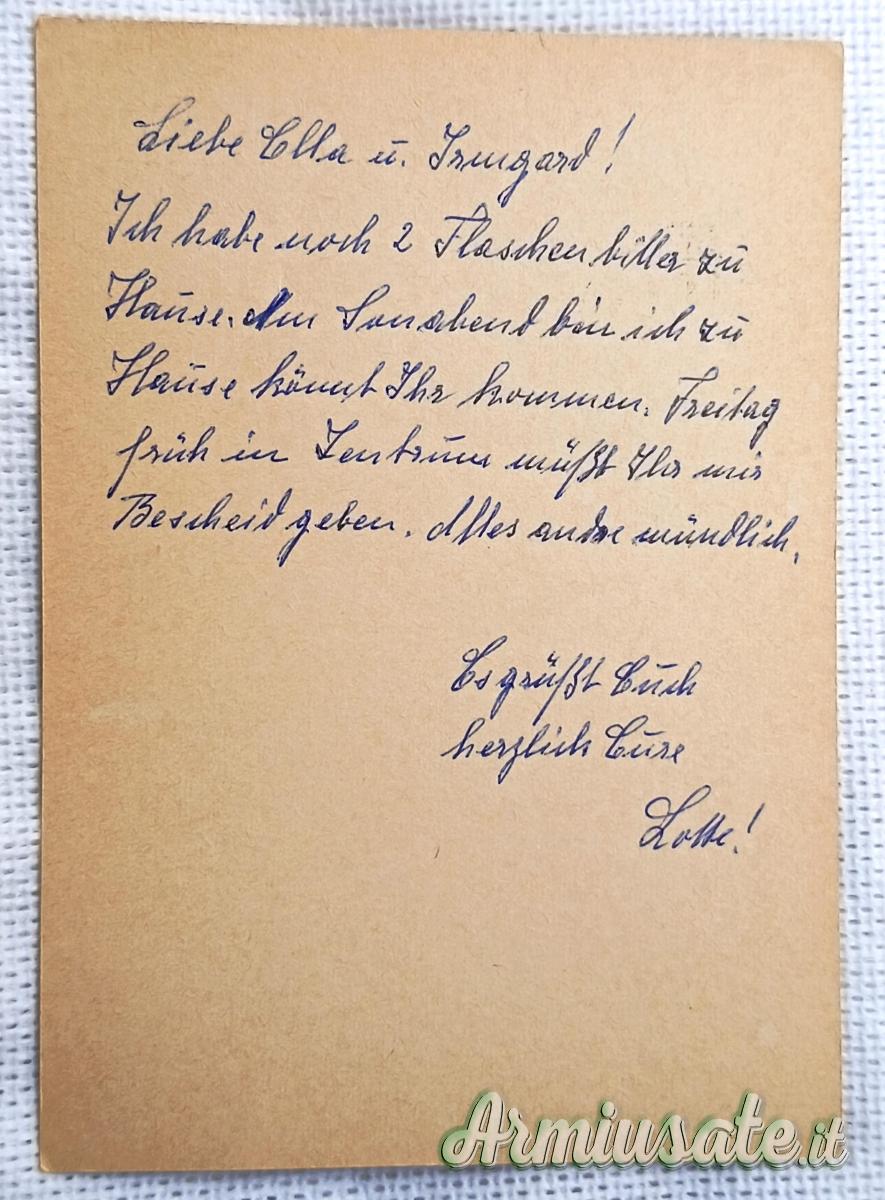 Liebe Ella u. Irmgard!
Ich habe noch 2 Flaschen bitter zu
Hause. Am Sonabend bin ich zu
Hause könnt Ihr kommen. Freitag
früh in Zentrum müßt Ihr mir
Bescheid geben. Alles andre mündlich.
Es grüßt Euch
herzlich Eure
Lotte!
Armiusate.it